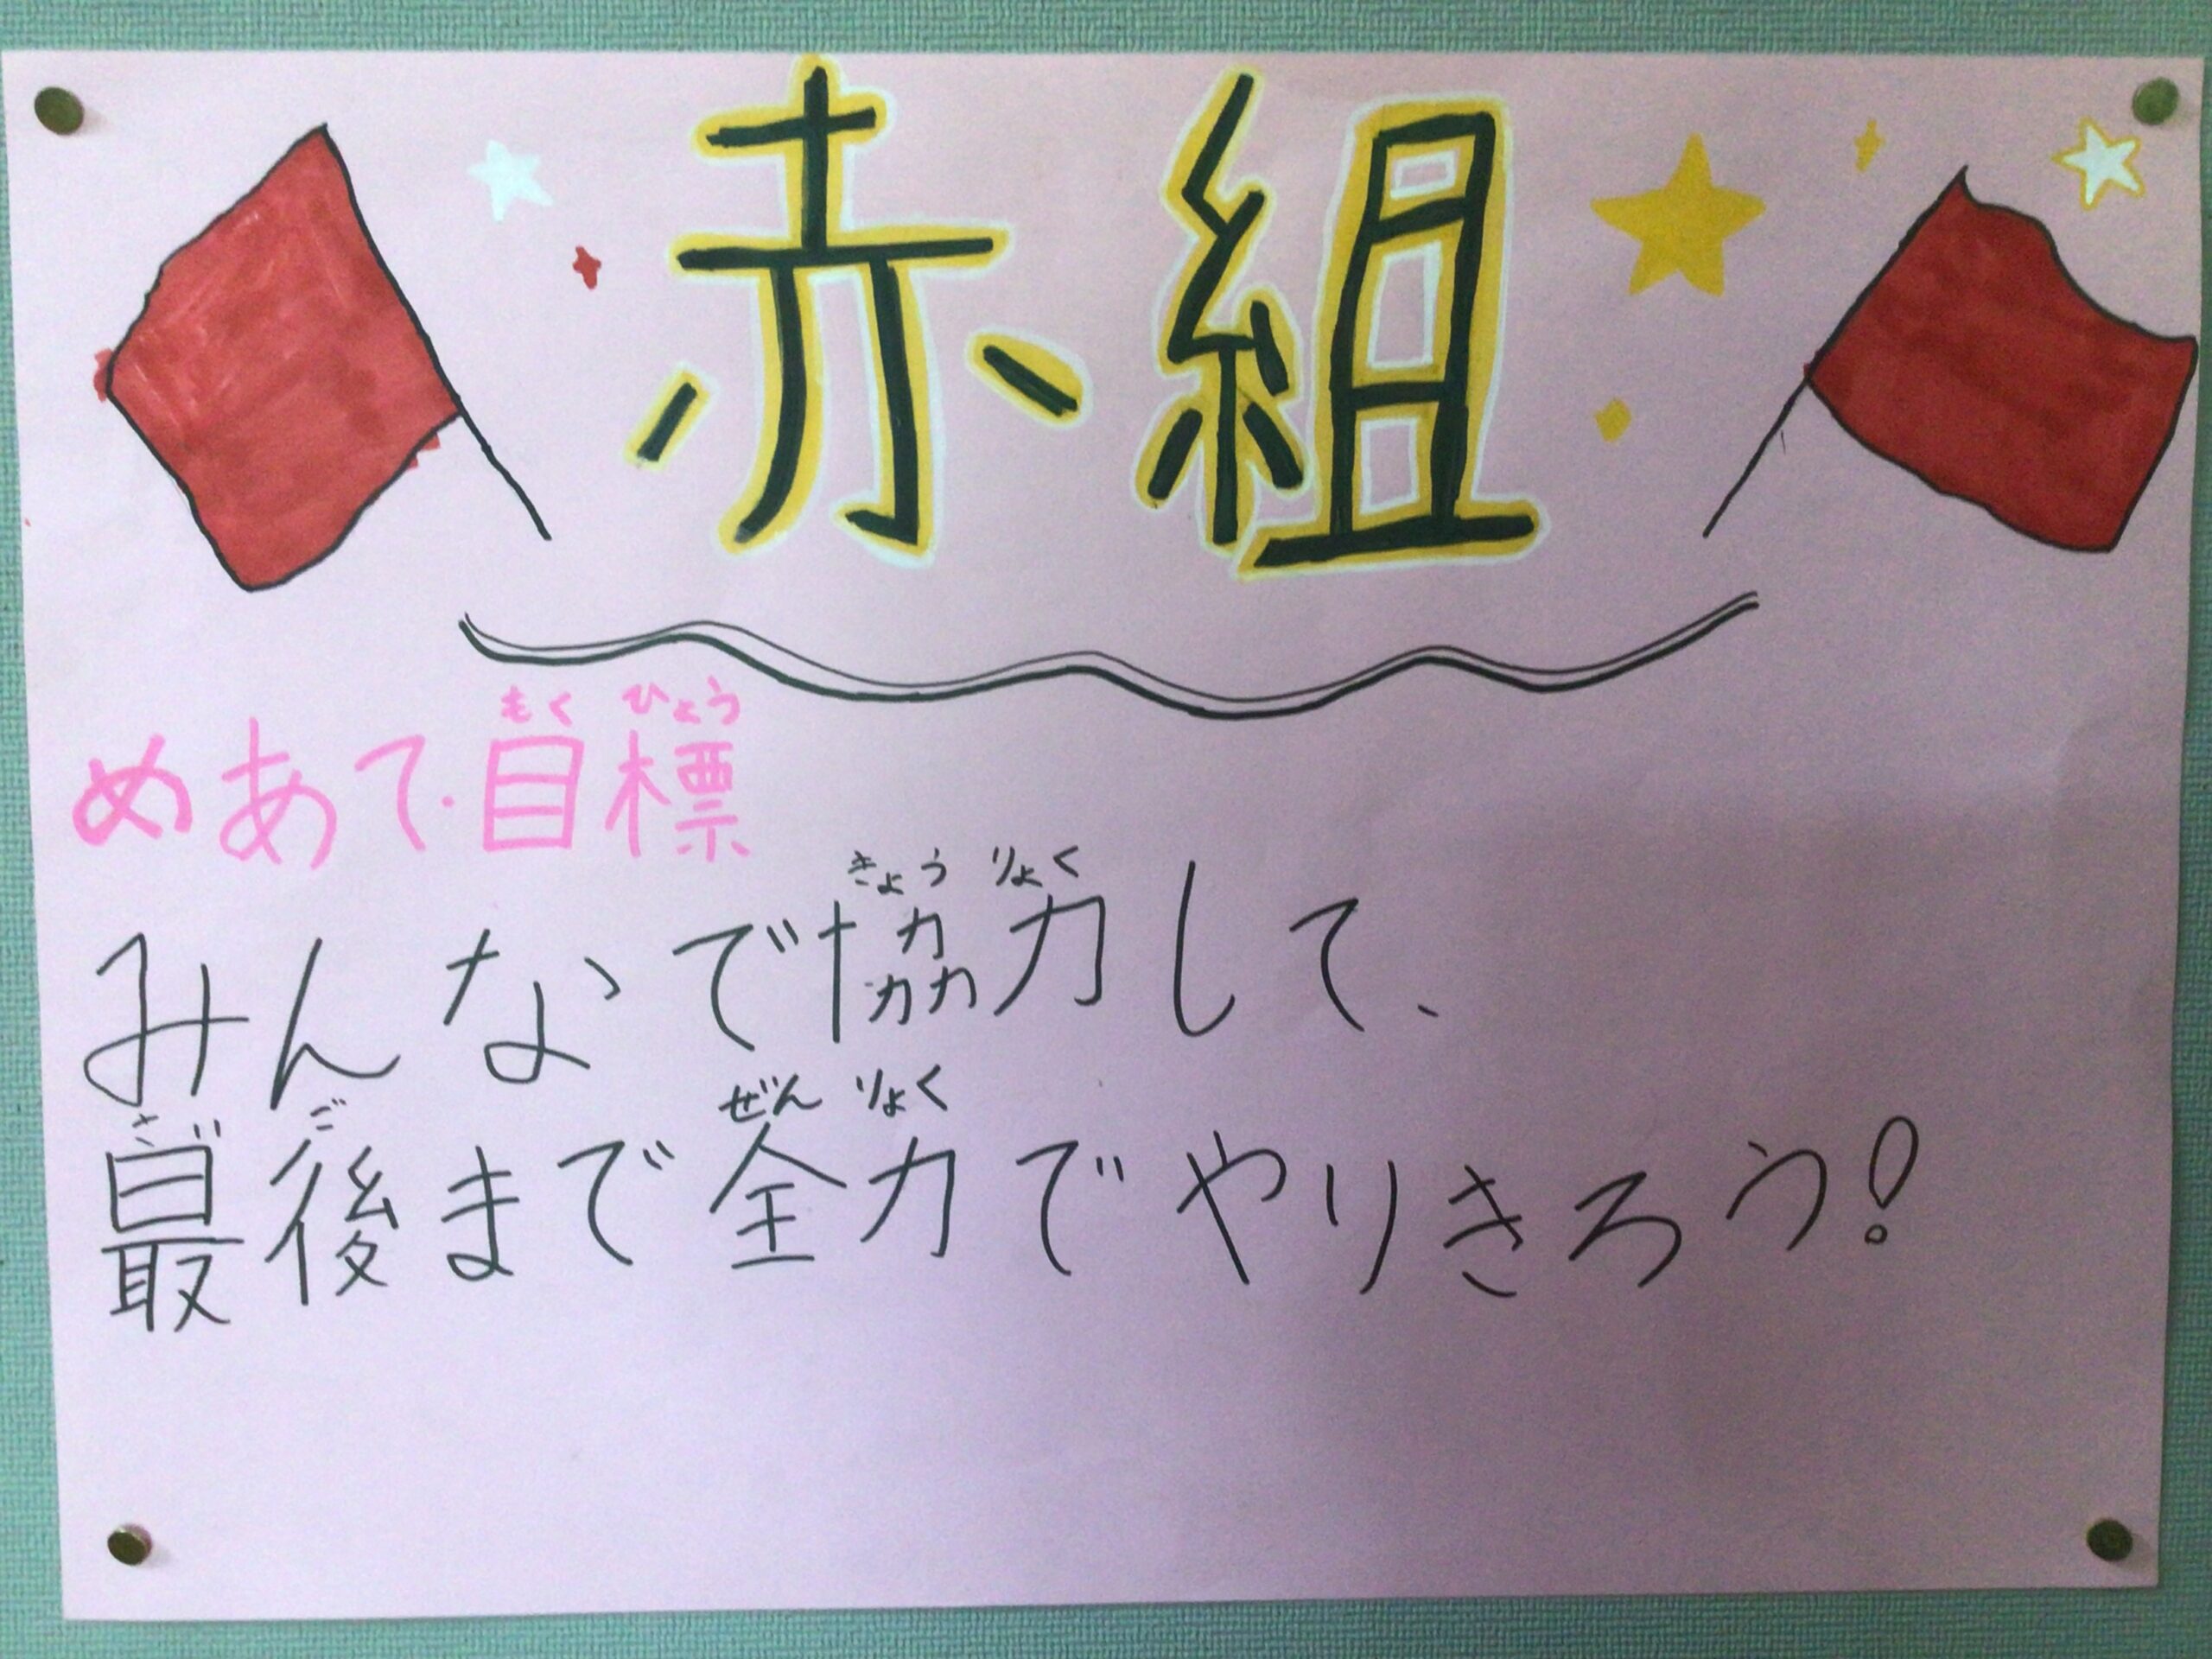 赤組
もくひょう
めあて・目標
きょうりょく
みんなで協力して、
さいご ぜんりょく
最後まで全力でやりきろう!